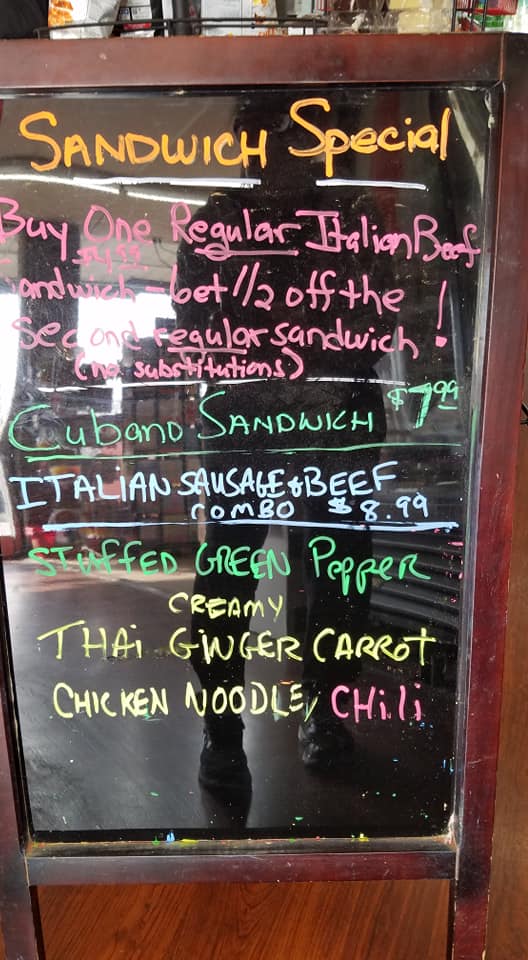 SANDWICH Special
Buy One Regular Italian Beef
$4.99
Sandwich - Get 1/2 off the
second regular sandwich!
(no substitutions)
Cubano SANDWICH $7.99
ITALIAN SAUSAGE & BEEF
COMBO $8.99
STUFFED GREEN PEPPER
CREAMY
THAI GINGER CARROT
CHICKEN NOODLE, CHili